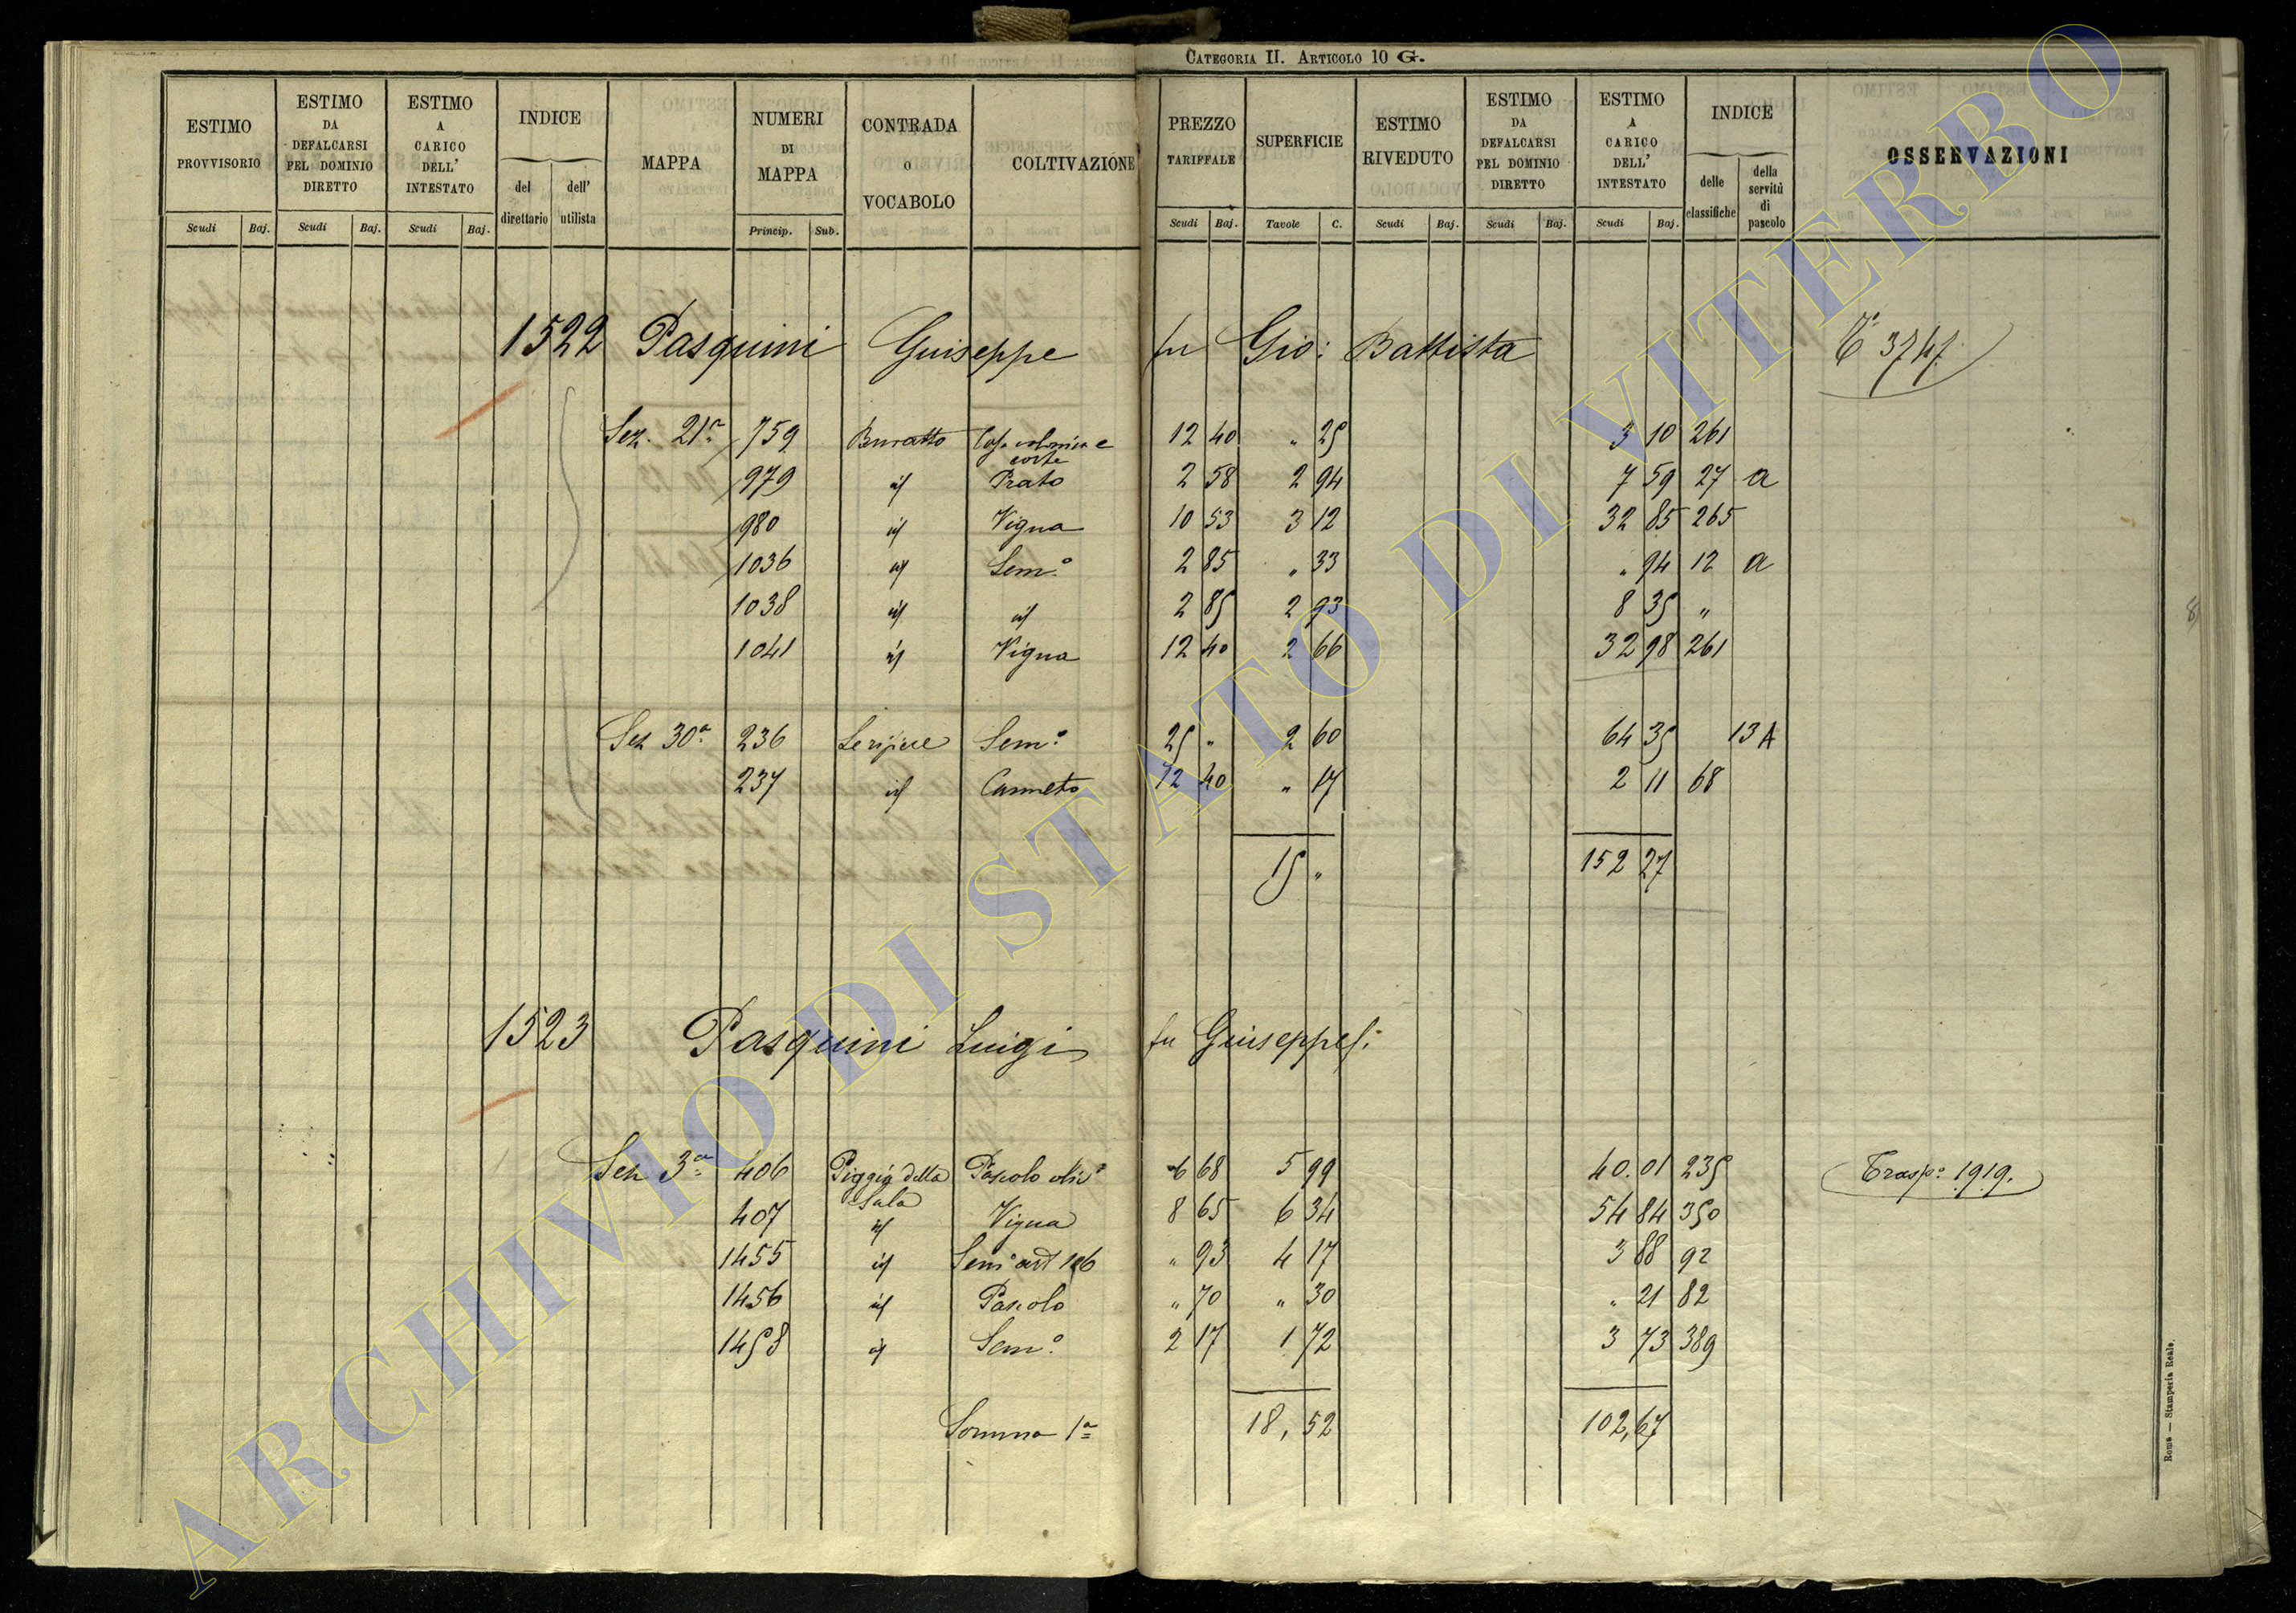 CATEGORIA II. ARTICOLO 10 G.
ESTIMO PROVVISORIO Scudi Baj.
ESTIMO DA DEFALCARSI PEL DOMINIO DIRETTO Scudi Baj.
ESTIMO A CARICO DELL' INTESTATO Scudi Baj.
INDICE del direttario dell' utilista
MAPPA
NUMERI DI MAPPA Princip. Sub.
CONTRADA O VOCABOLO
COLTIVAZIONE
PREZZO TARIFFALE Scudi Baj.
SUPERFICIE Tavole C.
ESTIMO RIVEDUTO Scudi Baj.
ESTIMO DA DEFALCARSI PEL DOMINIO DIRETTO Scudi Baj.
ESTIMO A CARICO DELL' INTESTATO Scudi Baj.
INDICE delle classifiche della servitù di pascolo
OSSERVAZIONI
1522 Pasquini Giuseppe fu Gio: Battista 3747
Sez. 21a 759 Buratto Casa colonica e corte 12 40 " 25 3 10 261
979 id Prato 2 58 2 94 7 59 27 a
980 id Vigna 10 53 3 12 32 85 265
1036 id Sem.o 2 85 " 33 " 94 12 a
1038 id id 2 85 2 93 8 35 "
1041 id Vigna 12 40 2 66 32 98 261
Sez 30a 236 Sem.o 25 " 2 60 64 35 13 A
237 id Canneto 12 40 " 17 2 11 68
15 " 152 27
1523 Pasquini Luigi fu Giuseppe
Sez 3a 406 Poggio della Sala Pascolo oliv.o 6 68 5 99 40.01 235 Trasp.o 1919.
407 id Vigna 8 65 6 34 54 84 350
1455 id Sem.o art 106 " 93 4 17 3 88 92
1456 id Pascolo " 70 " 30 " 21 82
1458 id Sem.o 2 17 1 72 3 73 389
Somma 1a 18,52 102,67
Roma — Stamperia Reale.
ARCHIVIO DI STATO DI VITERBO